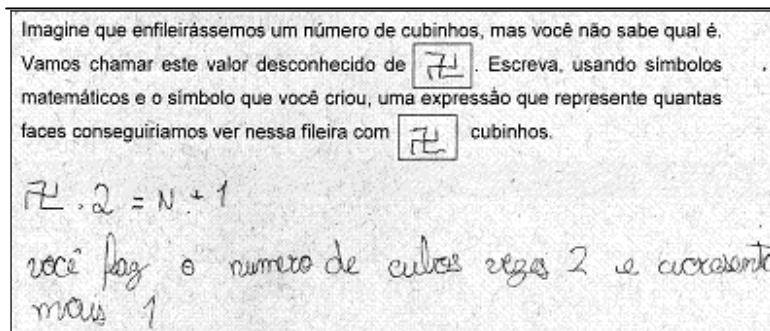 Imagine que enfileirássemos um número de cubinhos, mas você não sabe qual é.
Vamos chamar este valor desconhecido de 卍. Escreva, usando símbolos
matemáticos e o símbolo que você criou, uma expressão que represente quantas
faces conseguiríamos ver nessa fileira com 卍 cubinhos.
卍 . 2 = N + 1
você faz o numero de cubos vezes 2 e acresenta
mais 1